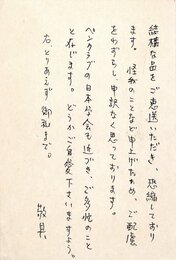 結構な品をご恵送いただき、恐縮しており
ます。怪我のことなど申上げたため、ご配慮
をわずらし、申訳なく思っております。
ペンクラブの日本大会も近づき、ご多忙のこと
と存じます。どうかご自愛下さいますよう。
右とりあえず御礼まで。
敬具